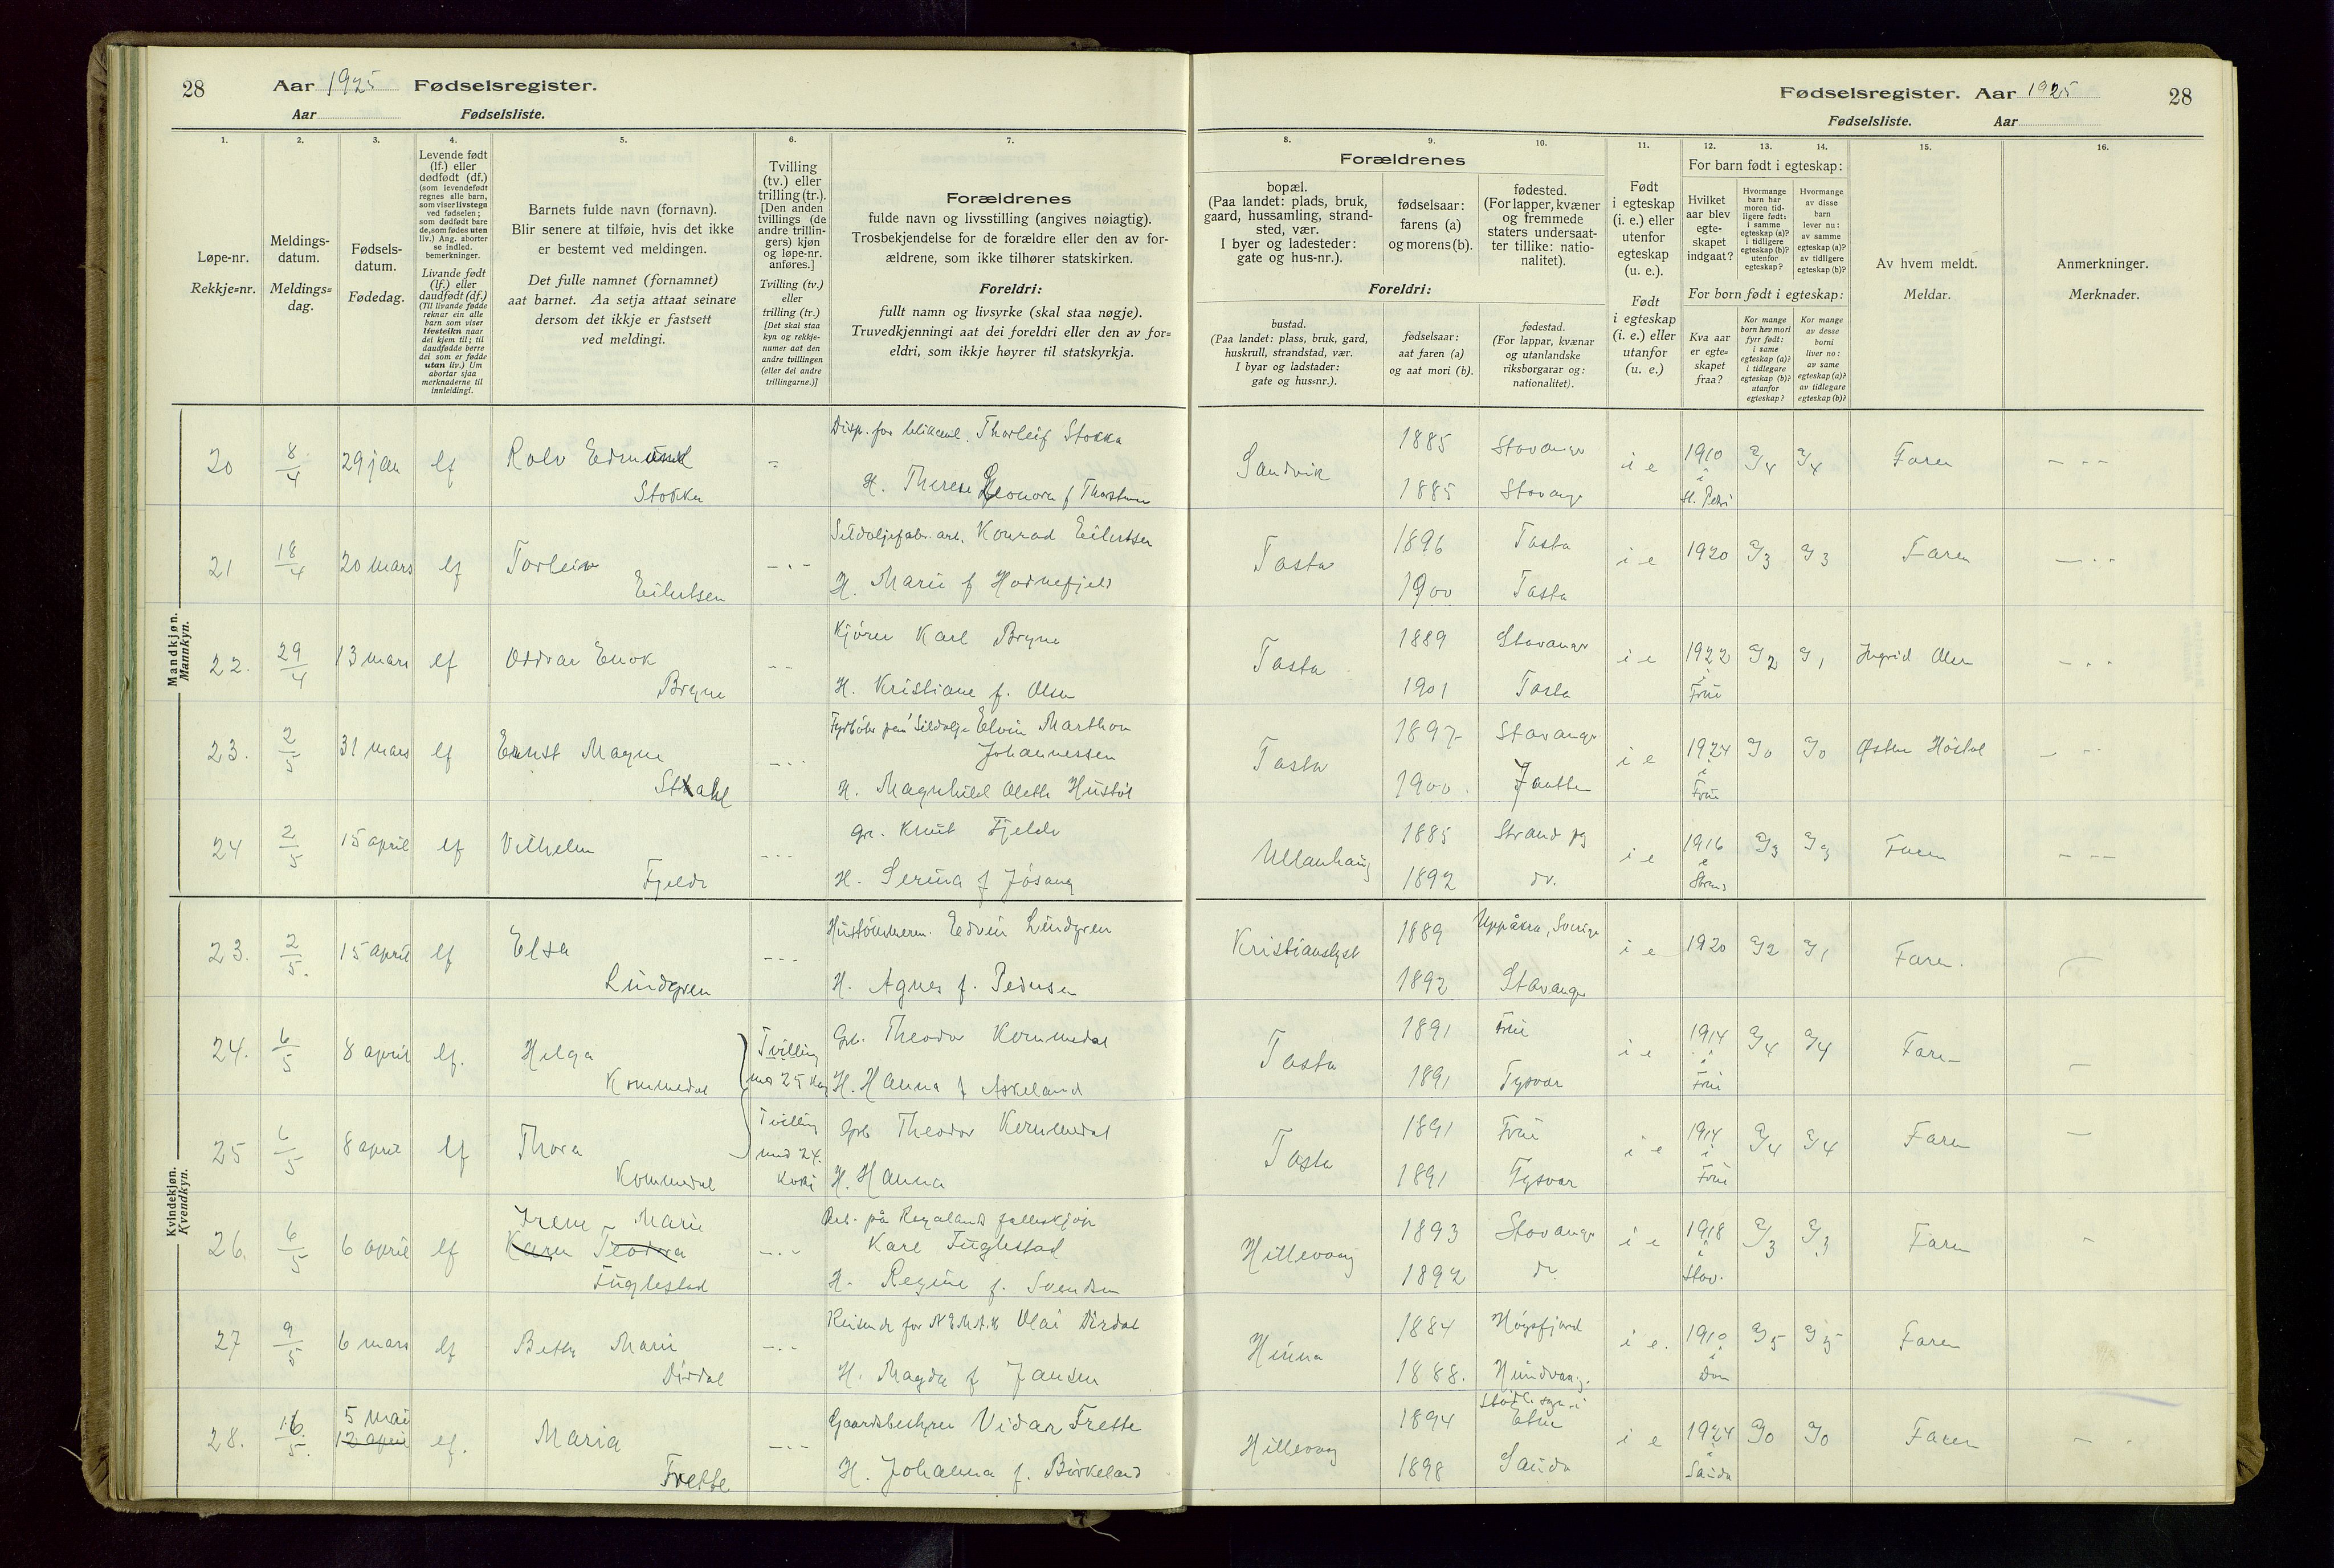 28 Aar 1925 Fødselsregister.
Aar Fødselsliste.
Fødselsregister. Aar 1925 28
Fødselsliste. Aar
1. 2. 3. 4. 5. 6. 7. 8. 9. 10. 11. 12. 13. 14. 15. 16.
Løpe-nr.
Rekkje=nr.
Meldings-
datum.
Meldings=
dag.
Fødsels-
datum.
Fødedag.
Levende født
(lf.) eller
dødfødt (df.)
(som levendefødt
regnes alle barn,
som viser livstegn
ved fødselen;
som dødfødt bare
de, som fødes uten
liv.) Ang. aborter
se indled.
bemerkninger.
Livande født
(lf.) eller
daudfødt (df.)
(Til livande fødde
reknar ein alle
barn som viser
livsteikn naar
dei kjem til; til
daudfødde berre
dei som er fødde
utan liv.) Um
abortar sjaa
merknaderne til
innleidingi.
Barnets fulde navn (fornavn).
Blir senere at tilføie, hvis det ikke
er bestemt ved meldingen.
Det fulle namnet (fornamnet)
aat barnet. Aa setja attaat seinare
dersom det ikkje er fastsett
ved meldingi.
Tvilling
(tv.) eller
trilling (tr.).
[Den anden
tvillings (de
andre trillin-
gers) kjøn
og løpe-nr.
anføres.]
Tvilling (tv.)
eller
trilling (tr.)
[Det skal staa
kyn og rekkje-
numer aat den
andre tvillingen
(eller dei andre
trillingarne.)]
Forældrenes
fulde navn og livsstilling (angives nøiagtig).
Trosbekjendelse for de forældre eller den av for-
ældrene, som ikke tilhører statskirken.
Foreldri:
fullt namn og livsyrke (skal staa nøgje).
Truvedkjenningi aat dei foreldri eller den av for=
eldri, som ikkje høyrer til statskyrkja.
Forældrenes
bopæl.
(Paa landet: plads, bruk,
gaard, hussamling, strand-
sted, vær.
I byer og ladesteder:
gate og hus-nr.).
fødselsaar:
farens (a)
og morens (b).
fødested.
(For lapper, kvæner
og fremmede
staters undersaat-
ter tillike: natio-
nalitet).
Foreldri:
bustad.
(Paa landet: plass, bruk, gard,
huskrull, strandstad, vær.
I byar og ladstader:
gate og hus=nr.).
fødselsaar:
aat faren (a)
og aat mori (b).
fødestad.
(For lappar, kvænar
og utanlandske
riksborgarar og:
nationalitet).
Født
i egteskap
(i. e.) eller
utenfor
egteskap
(u. e.).
Født
i egteskap
(i. e.) eller
utanfor
(u. e.)
For barn født i egteskap:
Hvilket
aar blev
egte-
skapet
indgaat?
Hvormange
barn har
moren tid-
ligere født:
i samme
egteskap (a)?
i tidligere
egteskap (b)?
utenfor
egteskap?
Hvormange
av disse
barn
lever nu:
av samme
egteskap (a)?
av tidligere
egteskap (b)?
For born født i egteskap:
Kva aar
er egte=
skapet
fraa?
Kor mange
born hev mori
fyrr født:
i same
egteskap (a)?
i tidlegare
egteskap (b)?
utanfor
egteskap?
Kor mange
av desse
borni
liver no:
av same
egteskap (a)?
av tidlegare
egteskap (b)?
Av hvem meldt.
Meldar.
Anmerkninger.
Merknader.
Mandkjøn.
Mannkyn.
20 8/4 29 jan lf Rolv Edmund Stokka
Thorleif Stokka
H. Therese Leonora f Thorsen
Sandvik 1885 Stavanger 1885 Stavanger i e 1910 i St. Petri 4 4 Faren
21 18/4 20 mars lf Torleiv Eilertsen
Sildoljefabr. arb. Konrad Eilertsen
H. Marie f Hornefjeld
Tasta 1896 Tasta 1900 Tasta i e 1920 3 3 Faren
22. 29/4 13 mars lf Oddvar Enok Bryne
Kjører Karl Bryne
H. Kristiane f. Olsen
Tasta 1889 Stavanger 1901 Tasta i e 1922 i Frue 2 1 Ingrid Olsen
23. 2/5 31 mars lf Ernst Magne Stakl
Elvin Marthon
Johannessen
H. Magnhild Aleth Hustøl
Tasta 1897 Stavanger 1900 i e 1924 i Frue 0 0
24 2/5 15 april lf Vilhelm Fjelde
gr. Knut Fjelde
H. Serina f Jøsang
Ullanhaug 1885 Strand pg 1892 do. i e 1916 i Strand 3 3 Faren
Kvindekjøn.
Kvendkyn.
23. 2/5. 15 april lf Elsa Lindgren
Edvin Lindgren
H. Agnes f. Pedersen
Kristianslyst 1889 Uppåkra, Sverige 1892 Stavanger i e 1920 2 1 Faren.
24. 6/5 8 april lf. Helga Kommedal Tvilling med 25 kv
Grb. Theodor Kommedal
H. Hanna f Askeland
Tasta 1891 Frue 1891 Tysvær i e 1914 i Frue 4 4 Faren
25 6/5 8 april lf Thora Kommedal Tvilling med 24. kvki
Grb Theodor Kommedal
H. Hanna
Tasta 1891 Frue 1891 Tysvær i e 1914 i Frue 4 4 Faren
26. 6/5 6 april lf Irene Marie
Karen Teodora
Fuglestad
Arb. på Rogaland felleskjøp
Karl Fuglestad
H. Regine f. Svendsen
Hillevaag 1893 Stavanger 1892 do. i e 1918 i Stav. 3 3 Faren
27 9/5 6 mars lf Betty Marie Dirdal
Reisende for Olai Dirdal
H. Magda f Jansen
Hinna 1884 Høgsfjord 1888. Hundvaag. i e. 1910 i Dom 5 5 Faren
28. 16/5. 5 mai
12 april
lf. Maria Frette
Gaardsbestyrer Vidar Frette
H. Johanna f. Birkeland
Hillevaag 1894 Etne 1898 Sauda i e 1924 i Sauda 0 0 Faren